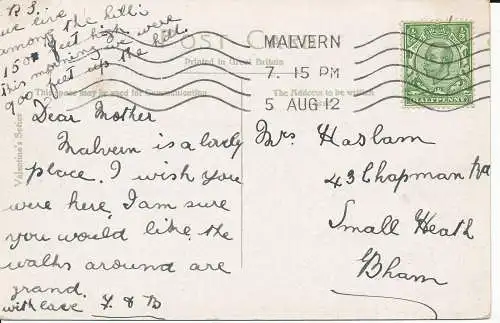 P.S.
we live
among the hills
150 feet high were
this morning we were
900 feet up the hill.
POST CARD
Printed in Great Britain
This space may be used for Communication
The Address to be written
Valentine's Series
MALVERN
7. 15 PM
5 AUG 12
HALFPENNY
Dear Mother
Malvern is a lovely
place. I wish you
were here, I am sure
you would like the
walks around are
grand.
with love
Mrs Haslam
43 Chapman Rd
Small Heath
Bham